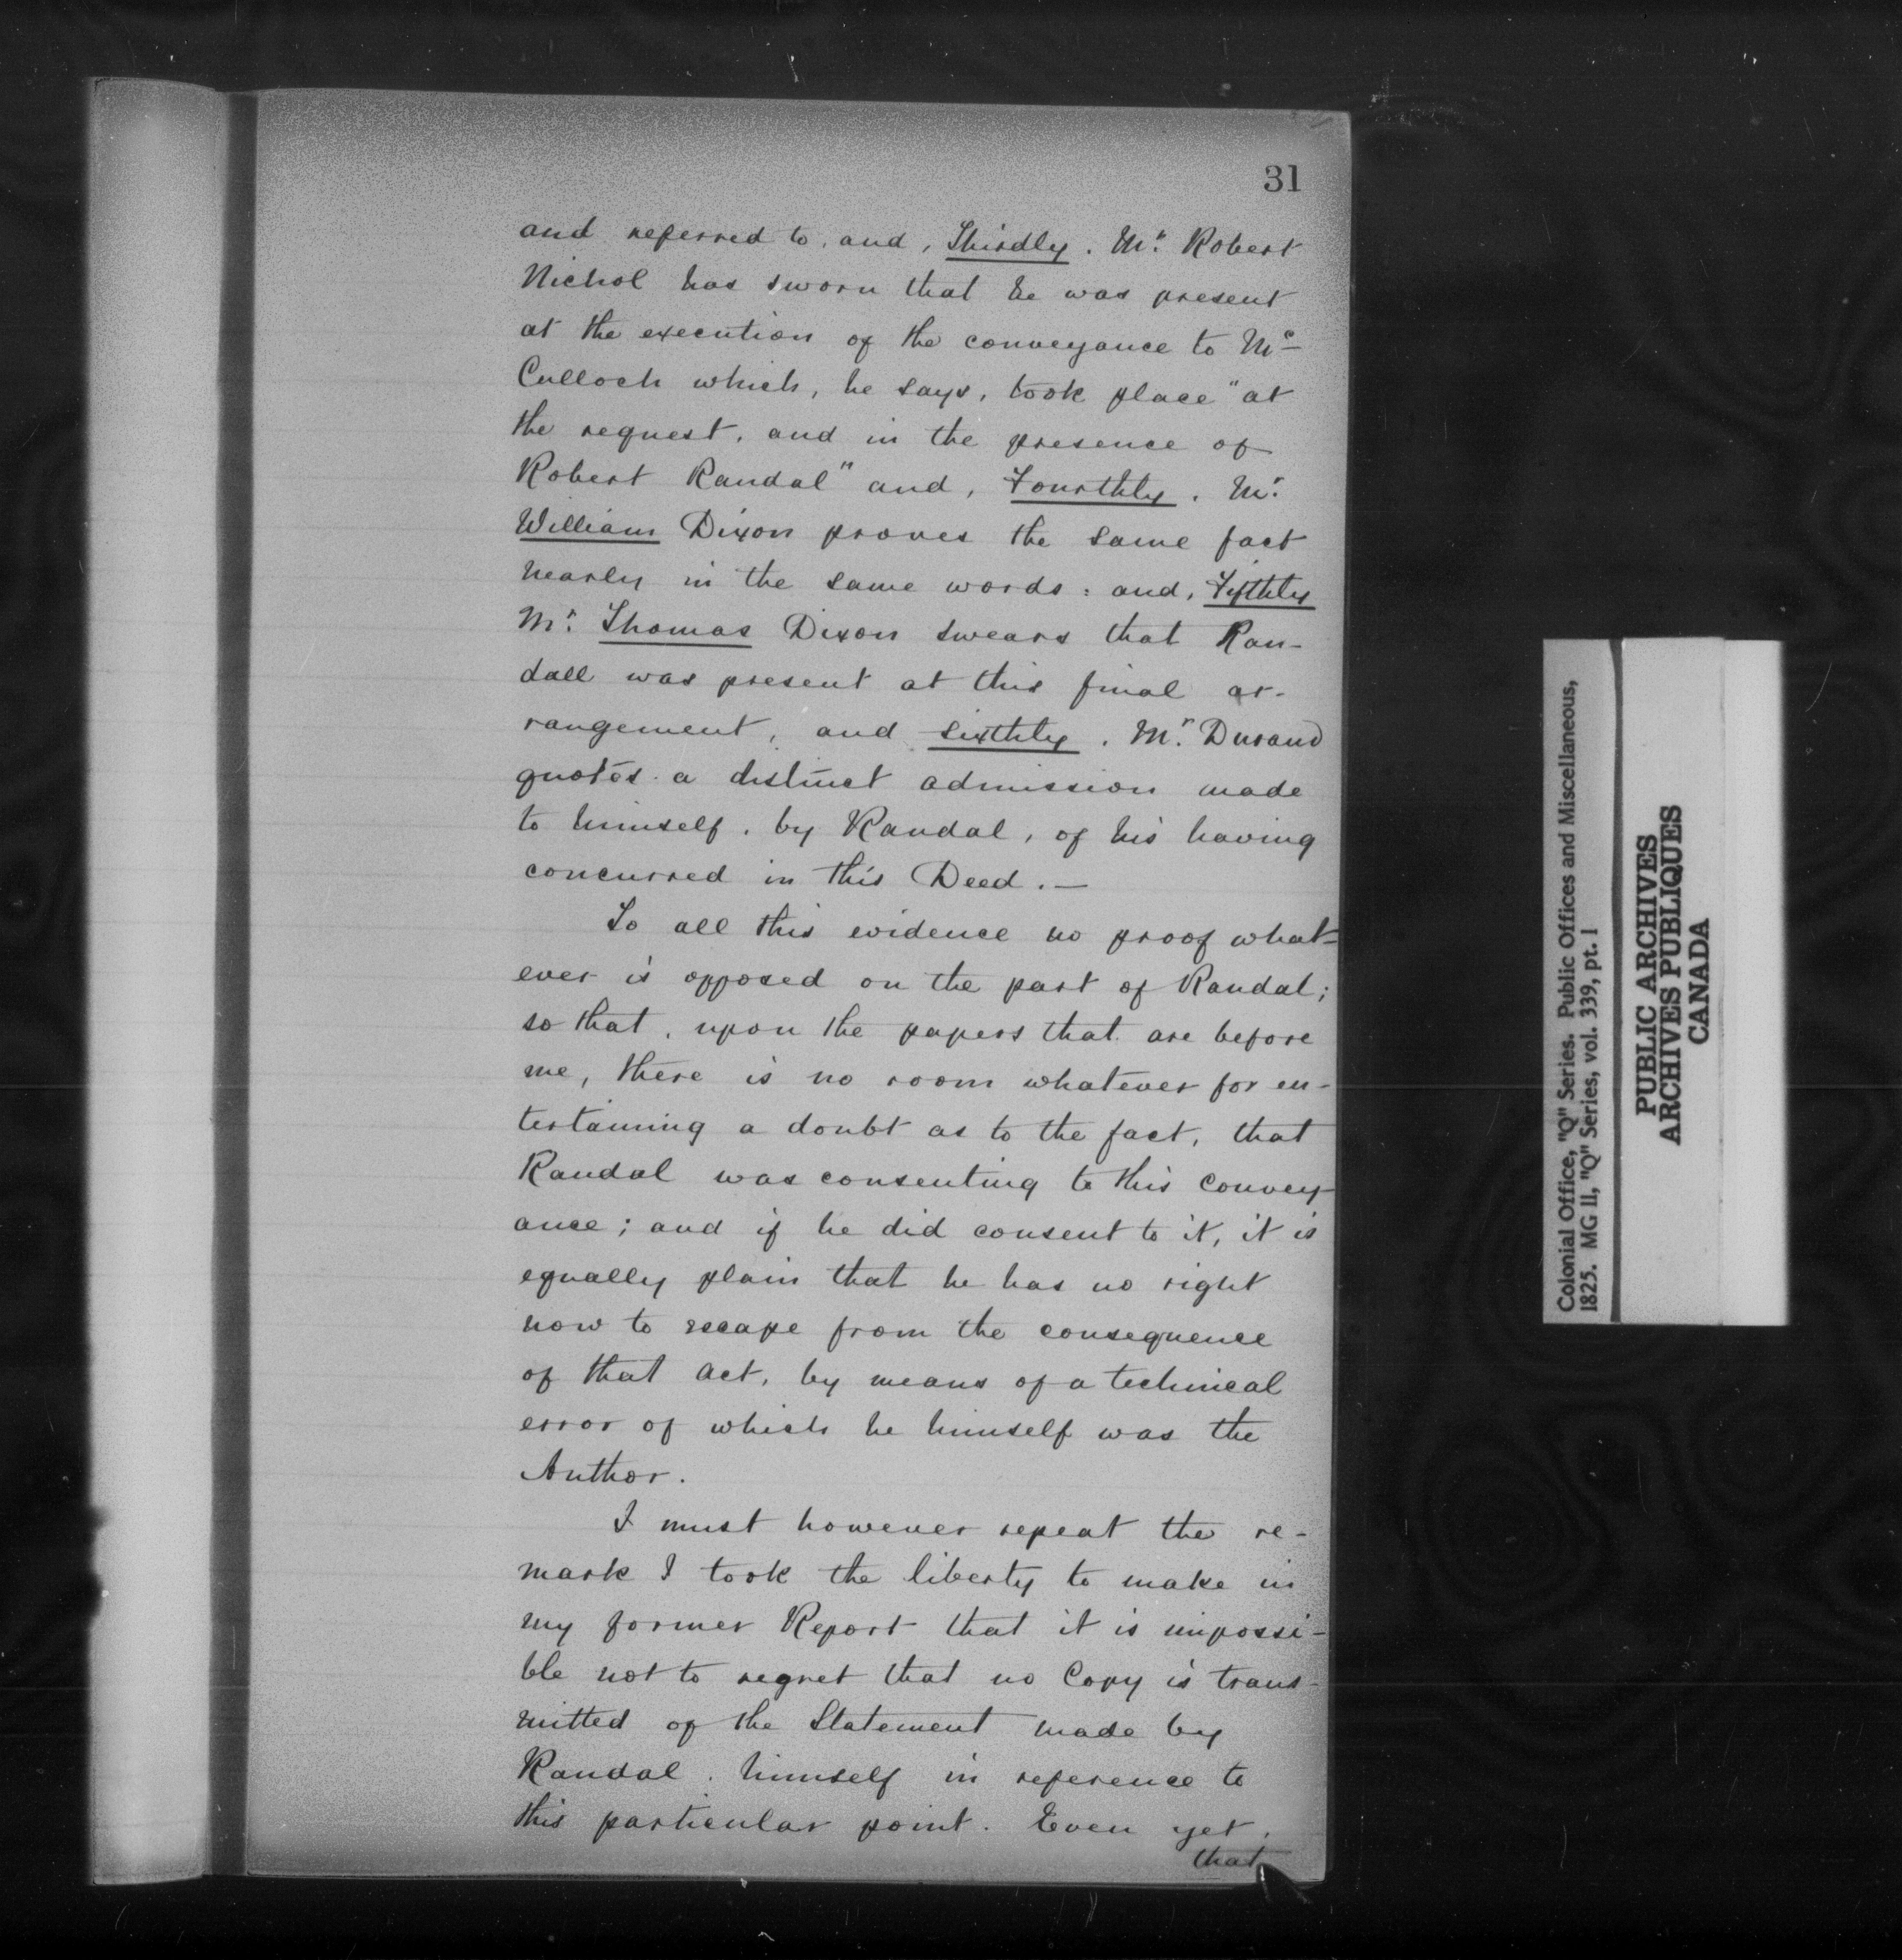 31
and referred to, and, Thirdly. Mr. Robert
Nichol has sworn that he was present
at the execution of the conveyance to Mc
Culloch which, he says, took place "at
the request, and in the presence of
Robert Randal" and, Fourthly. Mr.
William Dixon proves the same fact
nearly in the same words: and, Fifthly
Mr. Thomas Dixon swears that Ran-
dall was present at this final ar-
rangement, and sixthly. Mr. Durand
quotes a distinct admission made
to himself, by Randal, of his having
concurred in this Deed. —
To all this evidence no proof what-
ever is opposed on the part of Randal;
so that, upon the papers that are before
me, there is no room whatever for en-
tertaining a doubt as to the fact, that
Randal was consenting to this convey-
ance; and if he did consent to it, it is
equally plain that he has no right
now to escape from the consequence
of that act, by means of a technical
error of which he himself was the
Author.
I must however repeat the re-
mark I took the liberty to make in
my former Report that it is impossi-
ble not to regret that no Copy is trans-
mitted of the Statement made by
Randal. himself in reference to
this particular point. Even yet,
that
Colonial Office, "Q" Series. Public Offices and Miscellaneous,
1825. MG 11, "Q" Series, vol. 339, pt. 1
PUBLIC ARCHIVES
ARCHIVES PUBLIQUES
CANADA